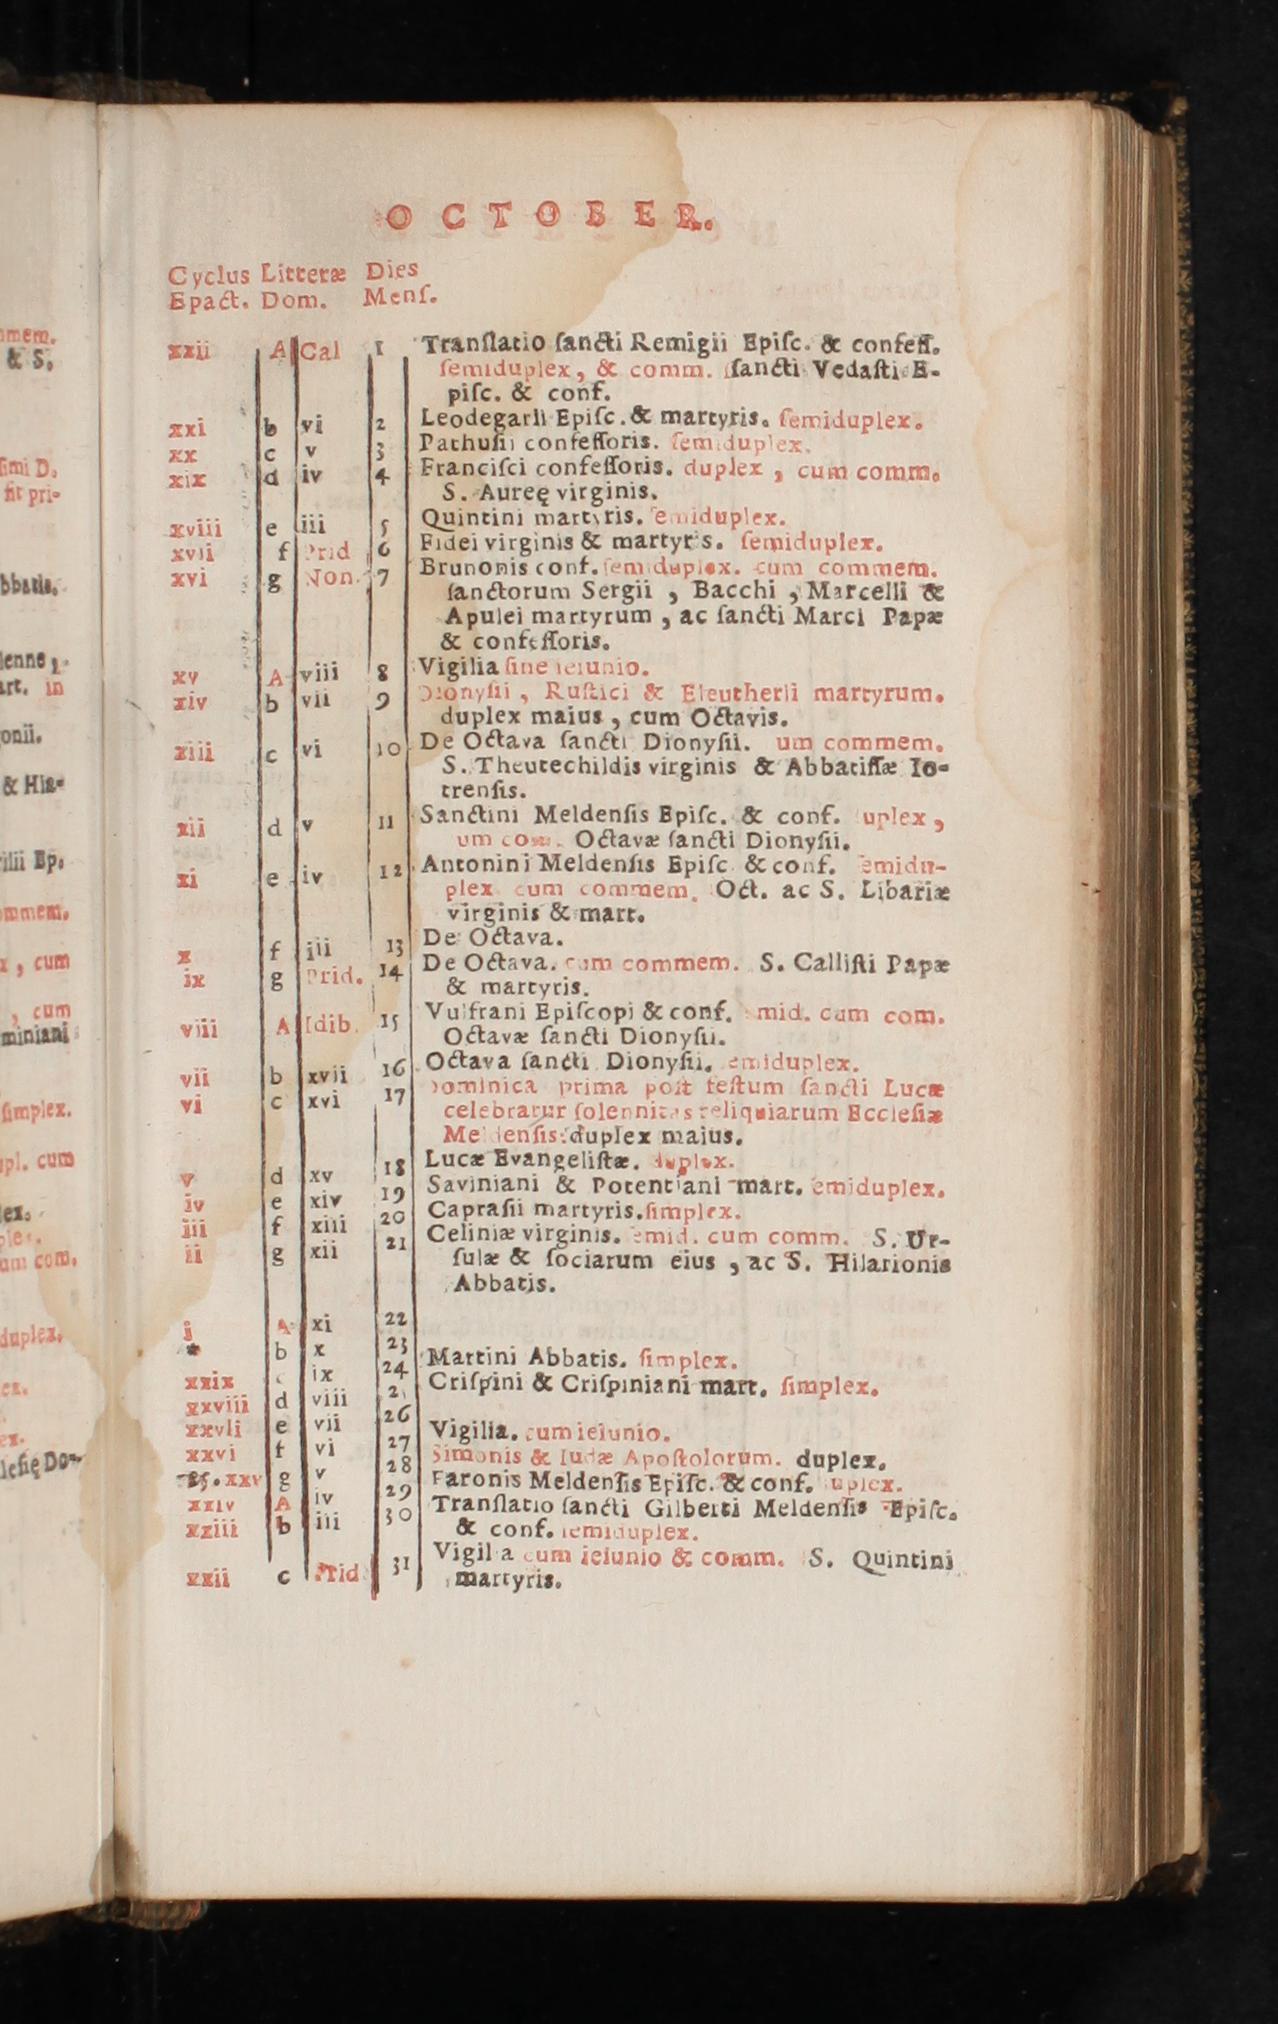 OCTOBER.
Cyclus Litteræ Dies
Epact. Dom. Menſ.
xxii A Cal 1 Tranſlatio ſancti Remigii Epiſc. & confeſſ.
ſemiduplex, & comm. ſancti Vedaſti E-
piſc. & conf.
xxi b vi 2 Leodegarii Epiſc. & martyris. ſemiduplex.
xx c v 3 Pathuſii confeſſoris. ſemiduplex.
xix d iv 4 Franciſci confeſſoris. duplex, cum comm.
S. Aureę virginis.
xviii e iii 5 Quintini martyris. ſemiduplex.
xvii f Prid 6 Fidei virginis & martyris. ſemiduplex.
xvi g Non. 7 Brunonis conf. ſemiduplex. cum commem.
ſanctorum Sergii, Bacchi, Marcelli &
Apulei martyrum, ac ſancti Marci Papæ
& confeſſoris.
xv A viii 8 Vigilia ſine ieiunio.
xiv b vii 9 Dionyſii, Ruſtici & Eleutherii martyrum.
duplex maius, cum Octavis.
xiii c vi 10 De Octava ſancti Dionyſii. um commem.
S. Theutechildis virginis & Abbatiſſæ Io-
trenſis.
xii d v 11 Sanctini Meldenſis Epiſc. & conf. uplex,
um com. Octavæ ſancti Dionyſii.
xi e iv 12 Antonini Meldenſis Epiſc & conf. ſemidu-
plex cum commem. Oct. ac S. Libariæ
virginis & mart.
x f iii 13 De Octava.
ix g Prid. 14 De Octava. cum commem. S. Calliſti Papæ
& martyris.
viii A Idib. 15 Vulfrani Epiſcopi & conf. mid. cum com.
Octavæ ſancti Dionyſii.
vii b xvii 16 Octava ſancti Dionyſii. emiduplex.
vi c xvi 17 Dominica prima poſt feſtum ſancti Lucæ
celebratur ſolennitas reliquiarum Eccleſiæ
Meldenſis: duplex maius.
v d xv 18 Lucæ Evangeliſtæ. duplex.
iv e xiv 19 Saviniani & Potentiani mart. emiduplex.
iii f xiii 20 Capraſii martyris. ſimplex.
ii g xii 21 Celiniæ virginis. emid. cum comm. S. Ur-
ſulæ & ſociarum eius, ac S. Hilarionis
Abbatis.
i A xi 22
* b x 23 Martini Abbatis. ſimplex.
xxix c ix 24 Criſpini & Criſpiniani mart. ſimplex.
xxviii d viii 2
xxvii e vii 26 Vigilia. cum ieiunio.
xxvi f vi 27 Simonis & Iudæ Apoſtolorum. duplex.
25. xxv g v 28 Faronis Meldenſis Epiſc. & conf. uplex.
xxiv A iv 29 Tranſlatio ſancti Gilberti Meldenſis Epiſc.
xxiii b iii 30 & conf. ſemiduplex.
xxii c Prid 31 Vigilia cum ieiunio & comm. S. Quintini
martyris.